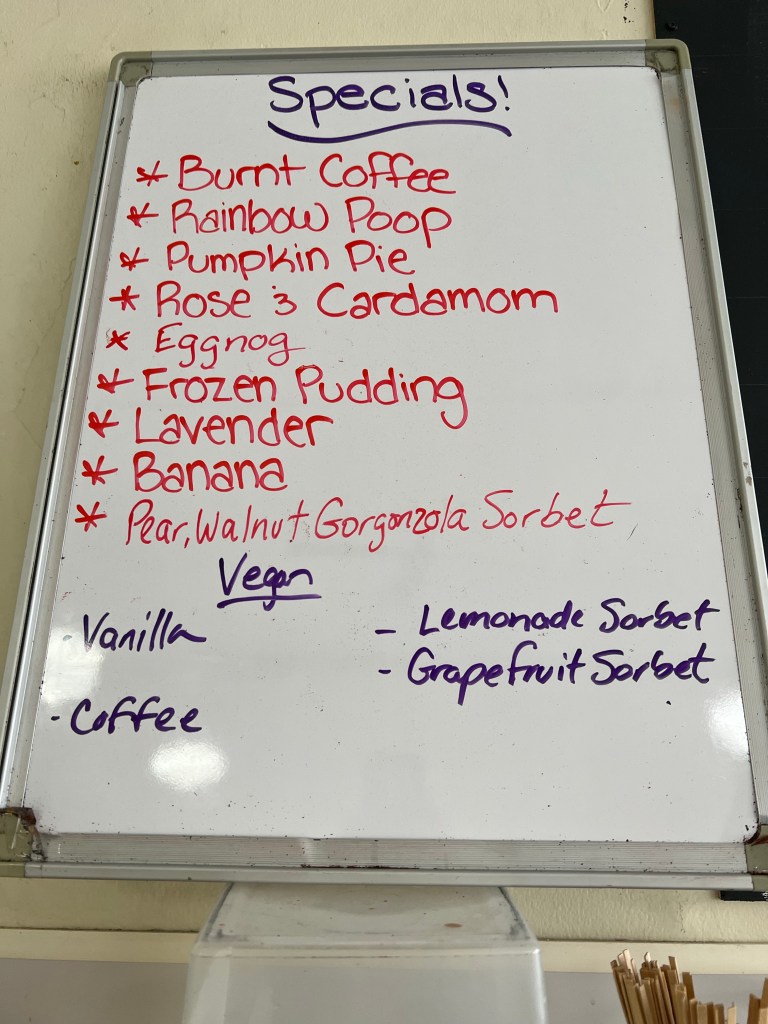 Specials!
* Burnt Coffee
* Rainbow Poop
* Pumpkin Pie
* Rose & Cardamom
* Eggnog
* Frozen Pudding
* Lavender
* Banana
* Pear, Walnut Gorgonzola Sorbet
Vegan
- Vanilla
- Coffee
- Lemonade Sorbet
- Grapefruit Sorbet